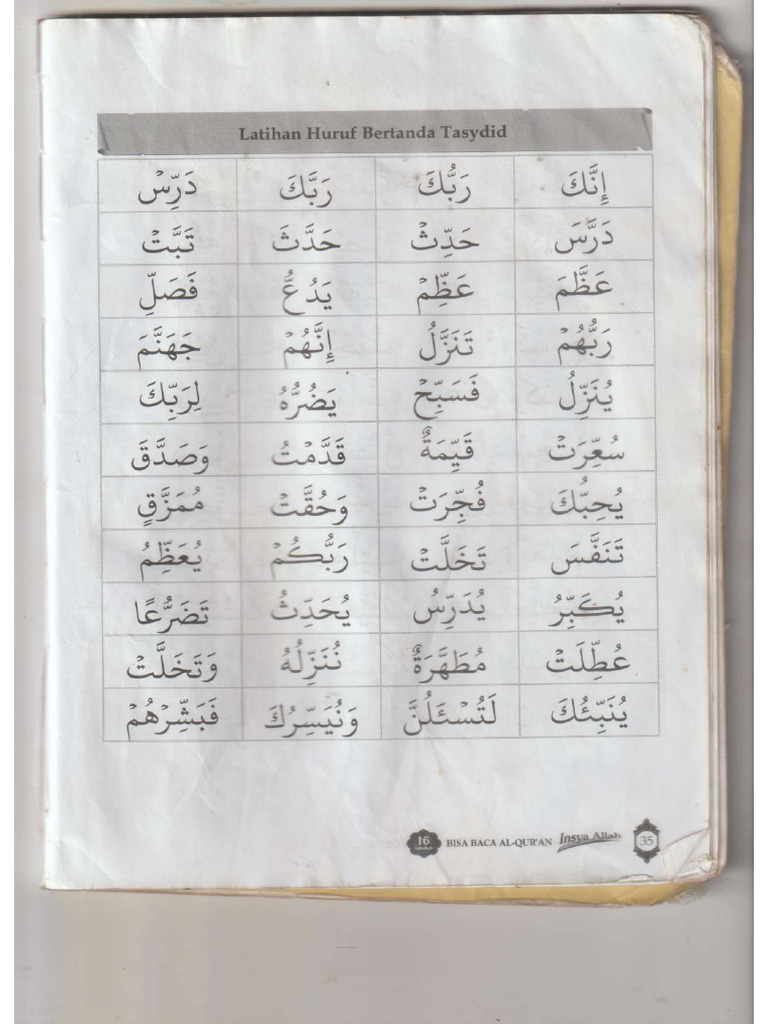 Latihan Huruf Bertanda Tasydid
إِنَّكَ رَبُّكَ رَبَّكَ دَرِّسْ
دَرَّسَ حَدِّثْ حَدَّثَ تَبَّتْ
عَظَّمَ عَظِّمْ يَدُعُّ فَصَلِّ
رَبُّهُمْ تَنَزَّلُ إِنَّهُمْ جَهَنَّمَ
يُنَزِّلُ فَسَبِّحْ يَضُرُّهُ لِرَبِّكَ
سُعِّرَتْ قَيِّمَةٌ قَدَّمْتُ وَصَدَّقَ
يُحِبُّكَ فُجِّرَتْ وَحُقَّتْ مُمَزَّقٍ
تَنَفَّسَ تَخَلَّتْ رَبُّكُمْ يُعَظِّمُ
يُكَبِّرُ يُدَرِّسُ يُحَدِّثُ تَضَرُّعًا
عُطِّلَتْ مُطَهَّرَةٌ نُنَزِّلُهُ وَتَخَلَّتْ
يُنَبِّئُكَ لَتُسْئَلُنَّ وَنُيَسِّرُكَ فَبَشِّرْهُمْ
16 BISA BACA AL-QUR'AN Insya Allah 35